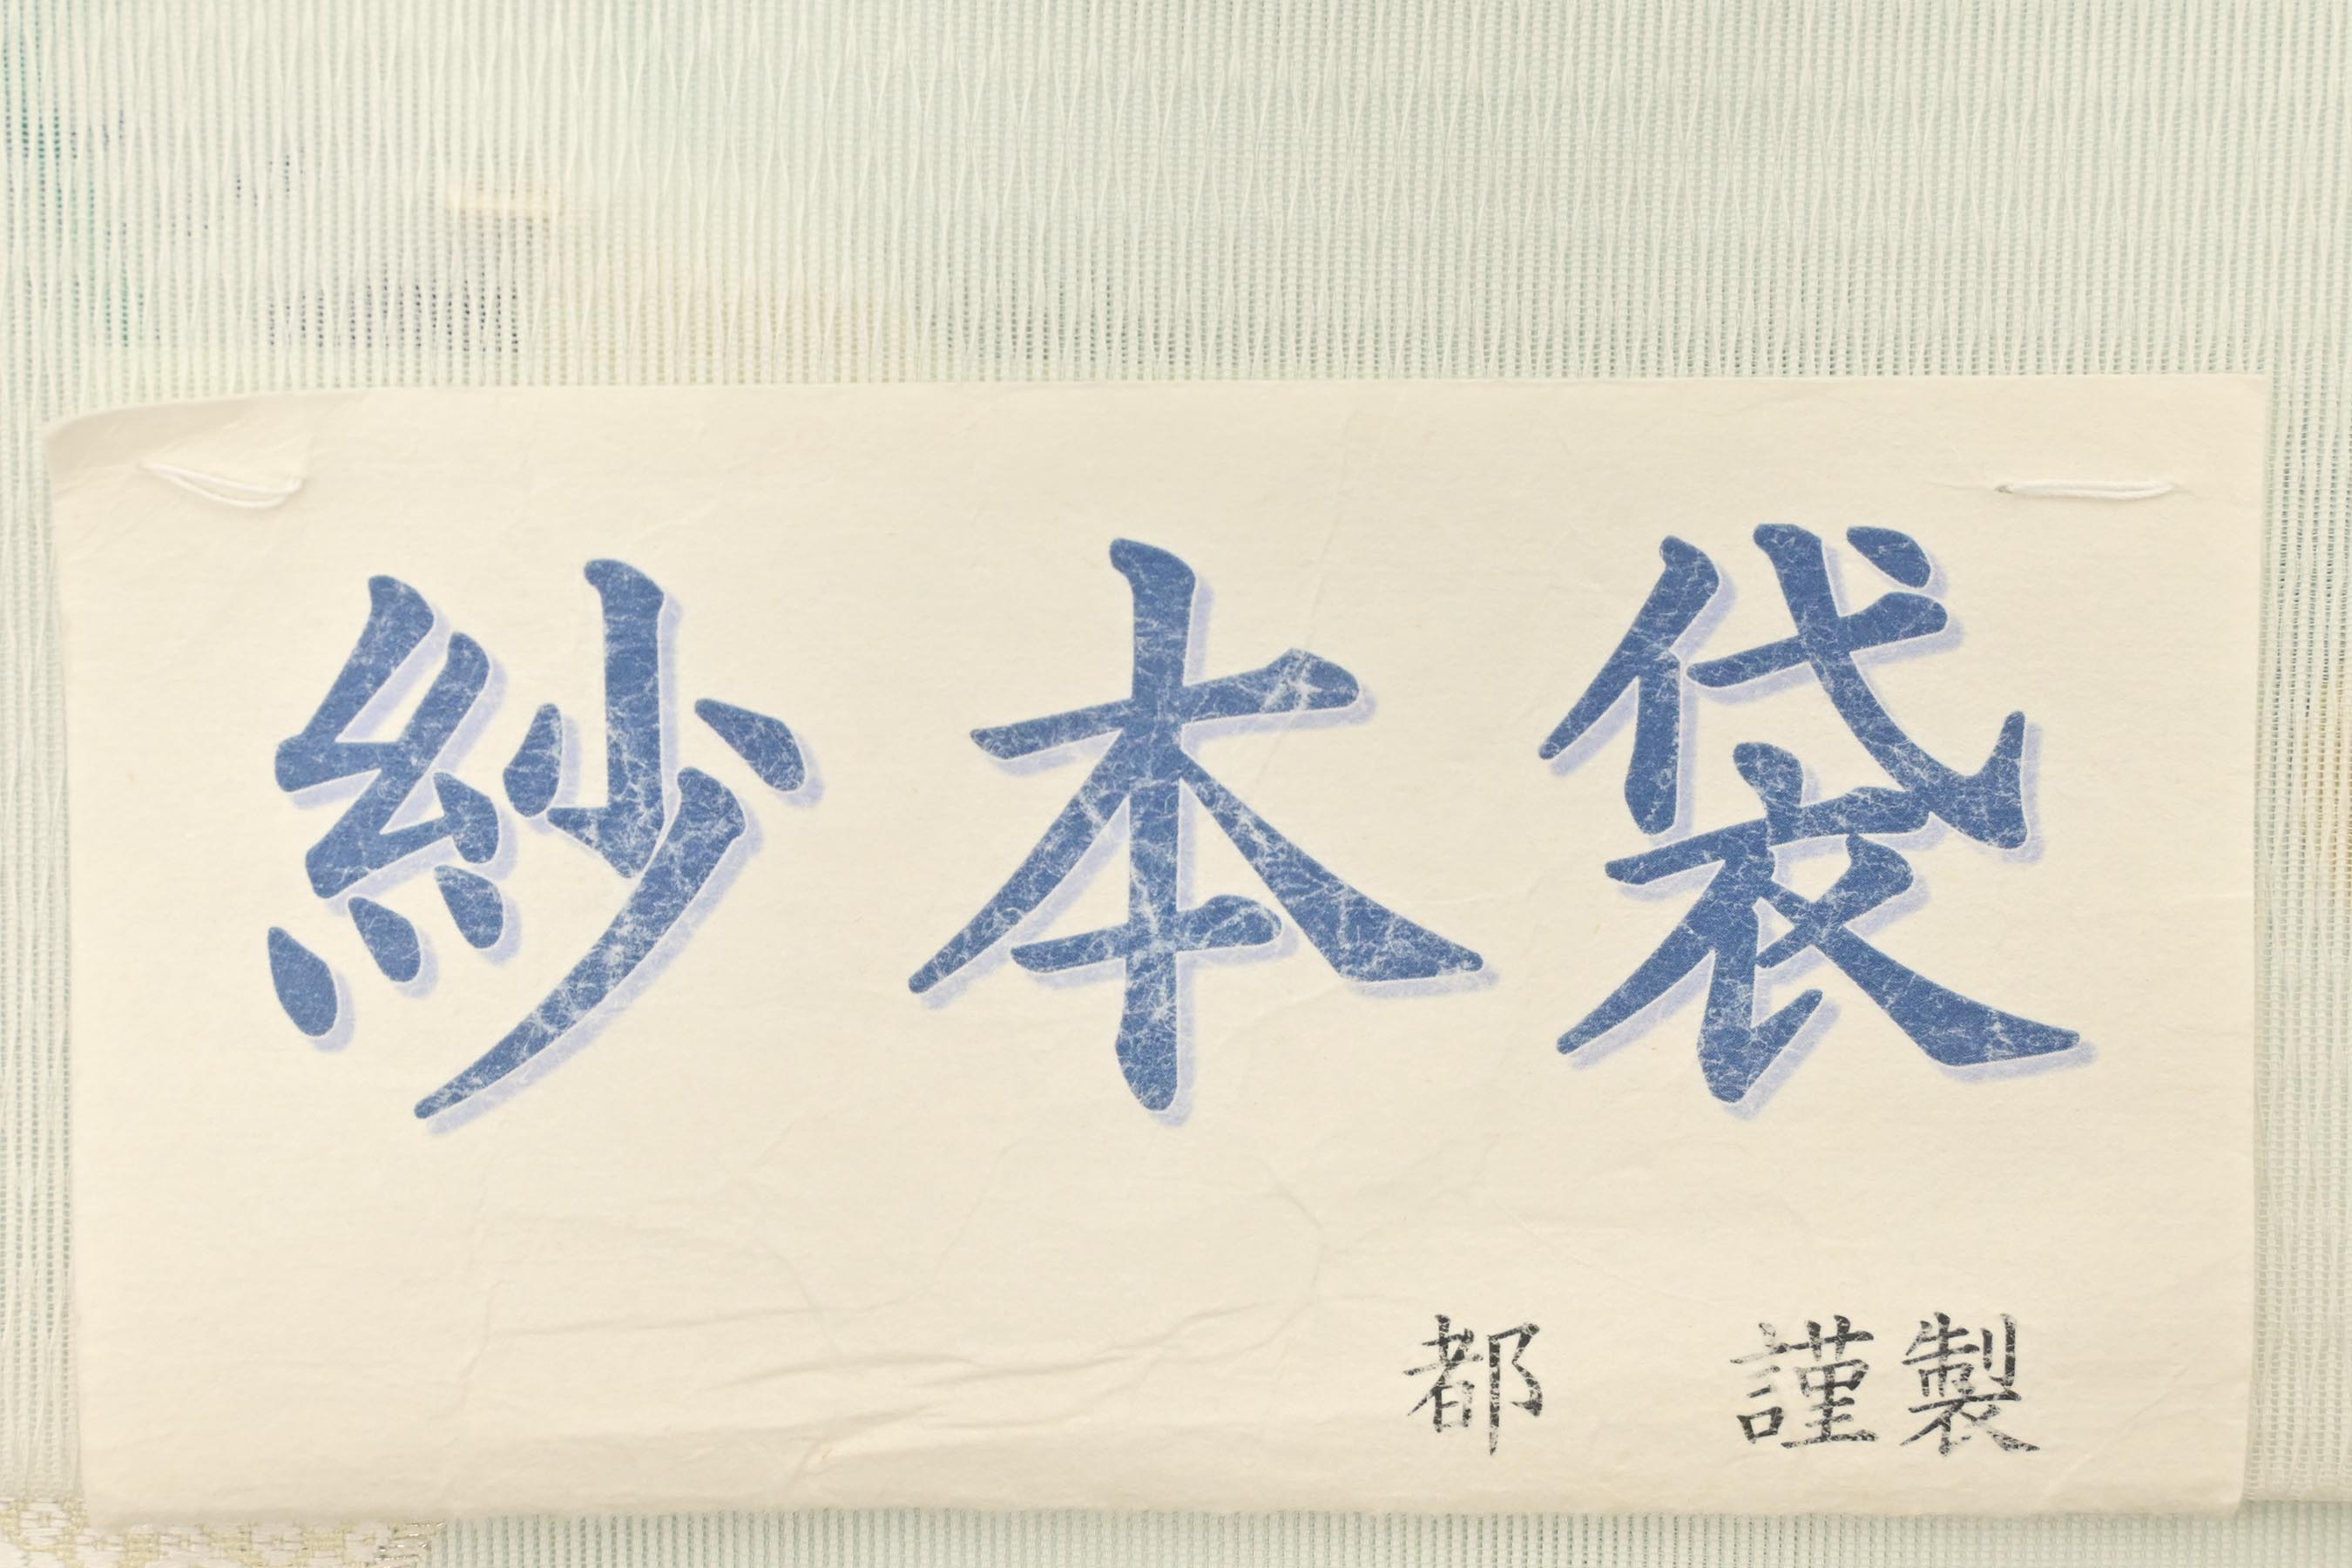 紗本袋
都 謹製